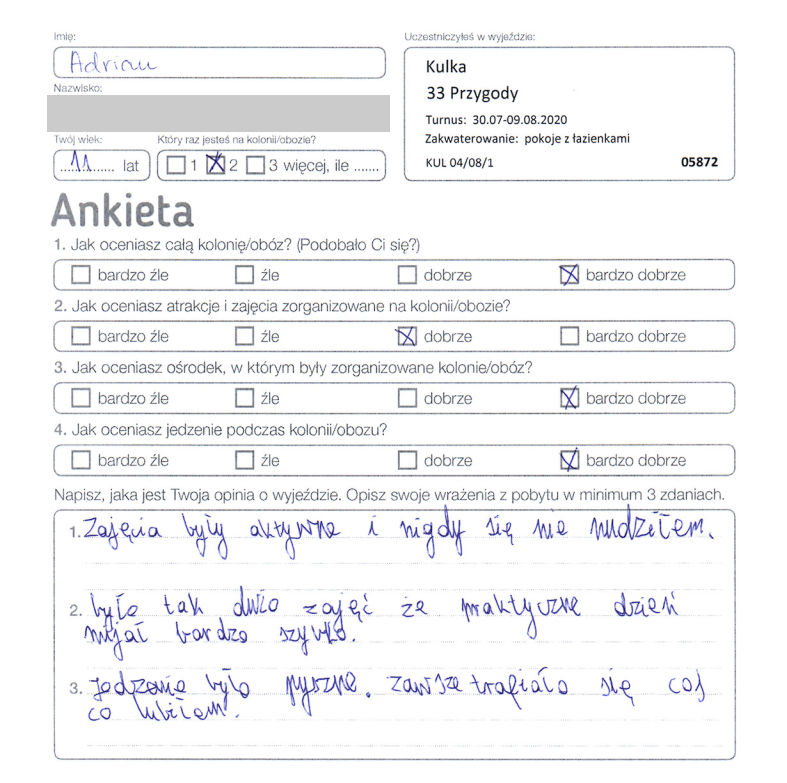 Imię:
Adrian
Nazwisko:
Twój wiek:
11 lat
Który raz jesteś na kolonii/obozie?
1 2 3 więcej, ile .......
Uczestniczyłeś w wyjeździe:
Kulka
33 Przygody
Turnus: 30.07-09.08.2020
Zakwaterowanie: pokoje z łazienkami
KUL 04/08/1 05872
Ankieta
1. Jak oceniasz całą kolonię/obóz? (Podobało Ci się?)
bardzo źle źle dobrze bardzo dobrze
2. Jak oceniasz atrakcje i zajęcia zorganizowane na kolonii/obozie?
bardzo źle źle dobrze bardzo dobrze
3. Jak oceniasz ośrodek, w którym były zorganizowane kolonie/obóz?
bardzo źle źle dobrze bardzo dobrze
4. Jak oceniasz jedzenie podczas kolonii/obozu?
bardzo źle źle dobrze bardzo dobrze
Napisz, jaka jest Twoja opinia o wyjeździe. Opisz swoje wrażenia z pobytu w minimum 3 zdaniach.
1. Zajęcia były aktywne i nigdy się nie nudziłem.
2. było tak dużo zajęć że praktyczne dzień
mijał bardzo szybko.
3. jedzenie było pyszne. zawsze trafiało się coś
co lubiłem.